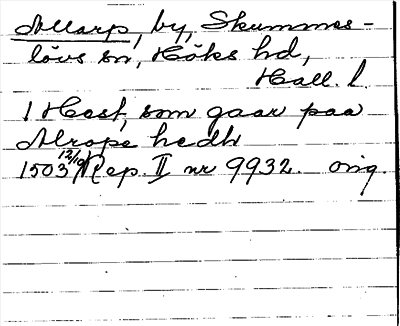 Allarp, by, Skummes-
lövs sn, Höks hd,
Hall. l.
1 Hest, som gaar paa
Alrops hedh
1503 12/10 Rep. II nr 9932. orig.